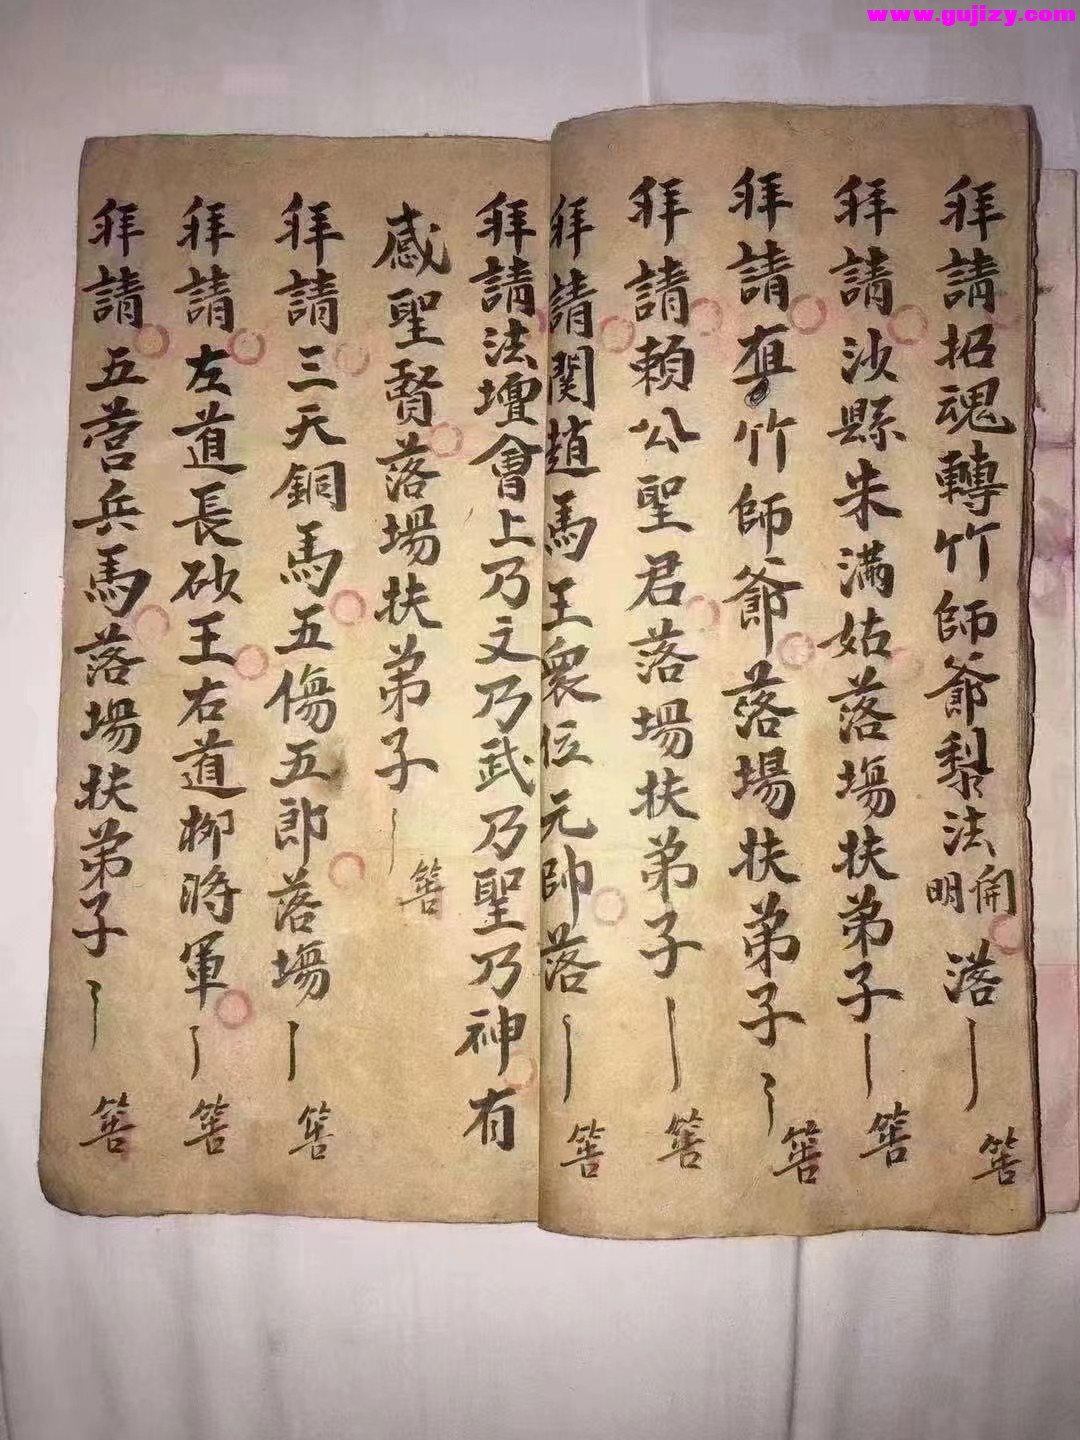 www.gujizy.com
拜請招魂轉竹師爺黎法開明落
拜請沙縣朱滿姑落場扶弟子
拜請竹師爺落場扶弟子
拜請賴公聖君落場扶弟子
拜請関趙馬王衆位元帥落
拜請法壇會上乃文乃武乃聖乃神有
感聖賢落場扶弟子
拜請三天銅馬五傷五郎落場
拜請左道長砂王右道柳將軍
拜請五营兵馬落場扶弟子